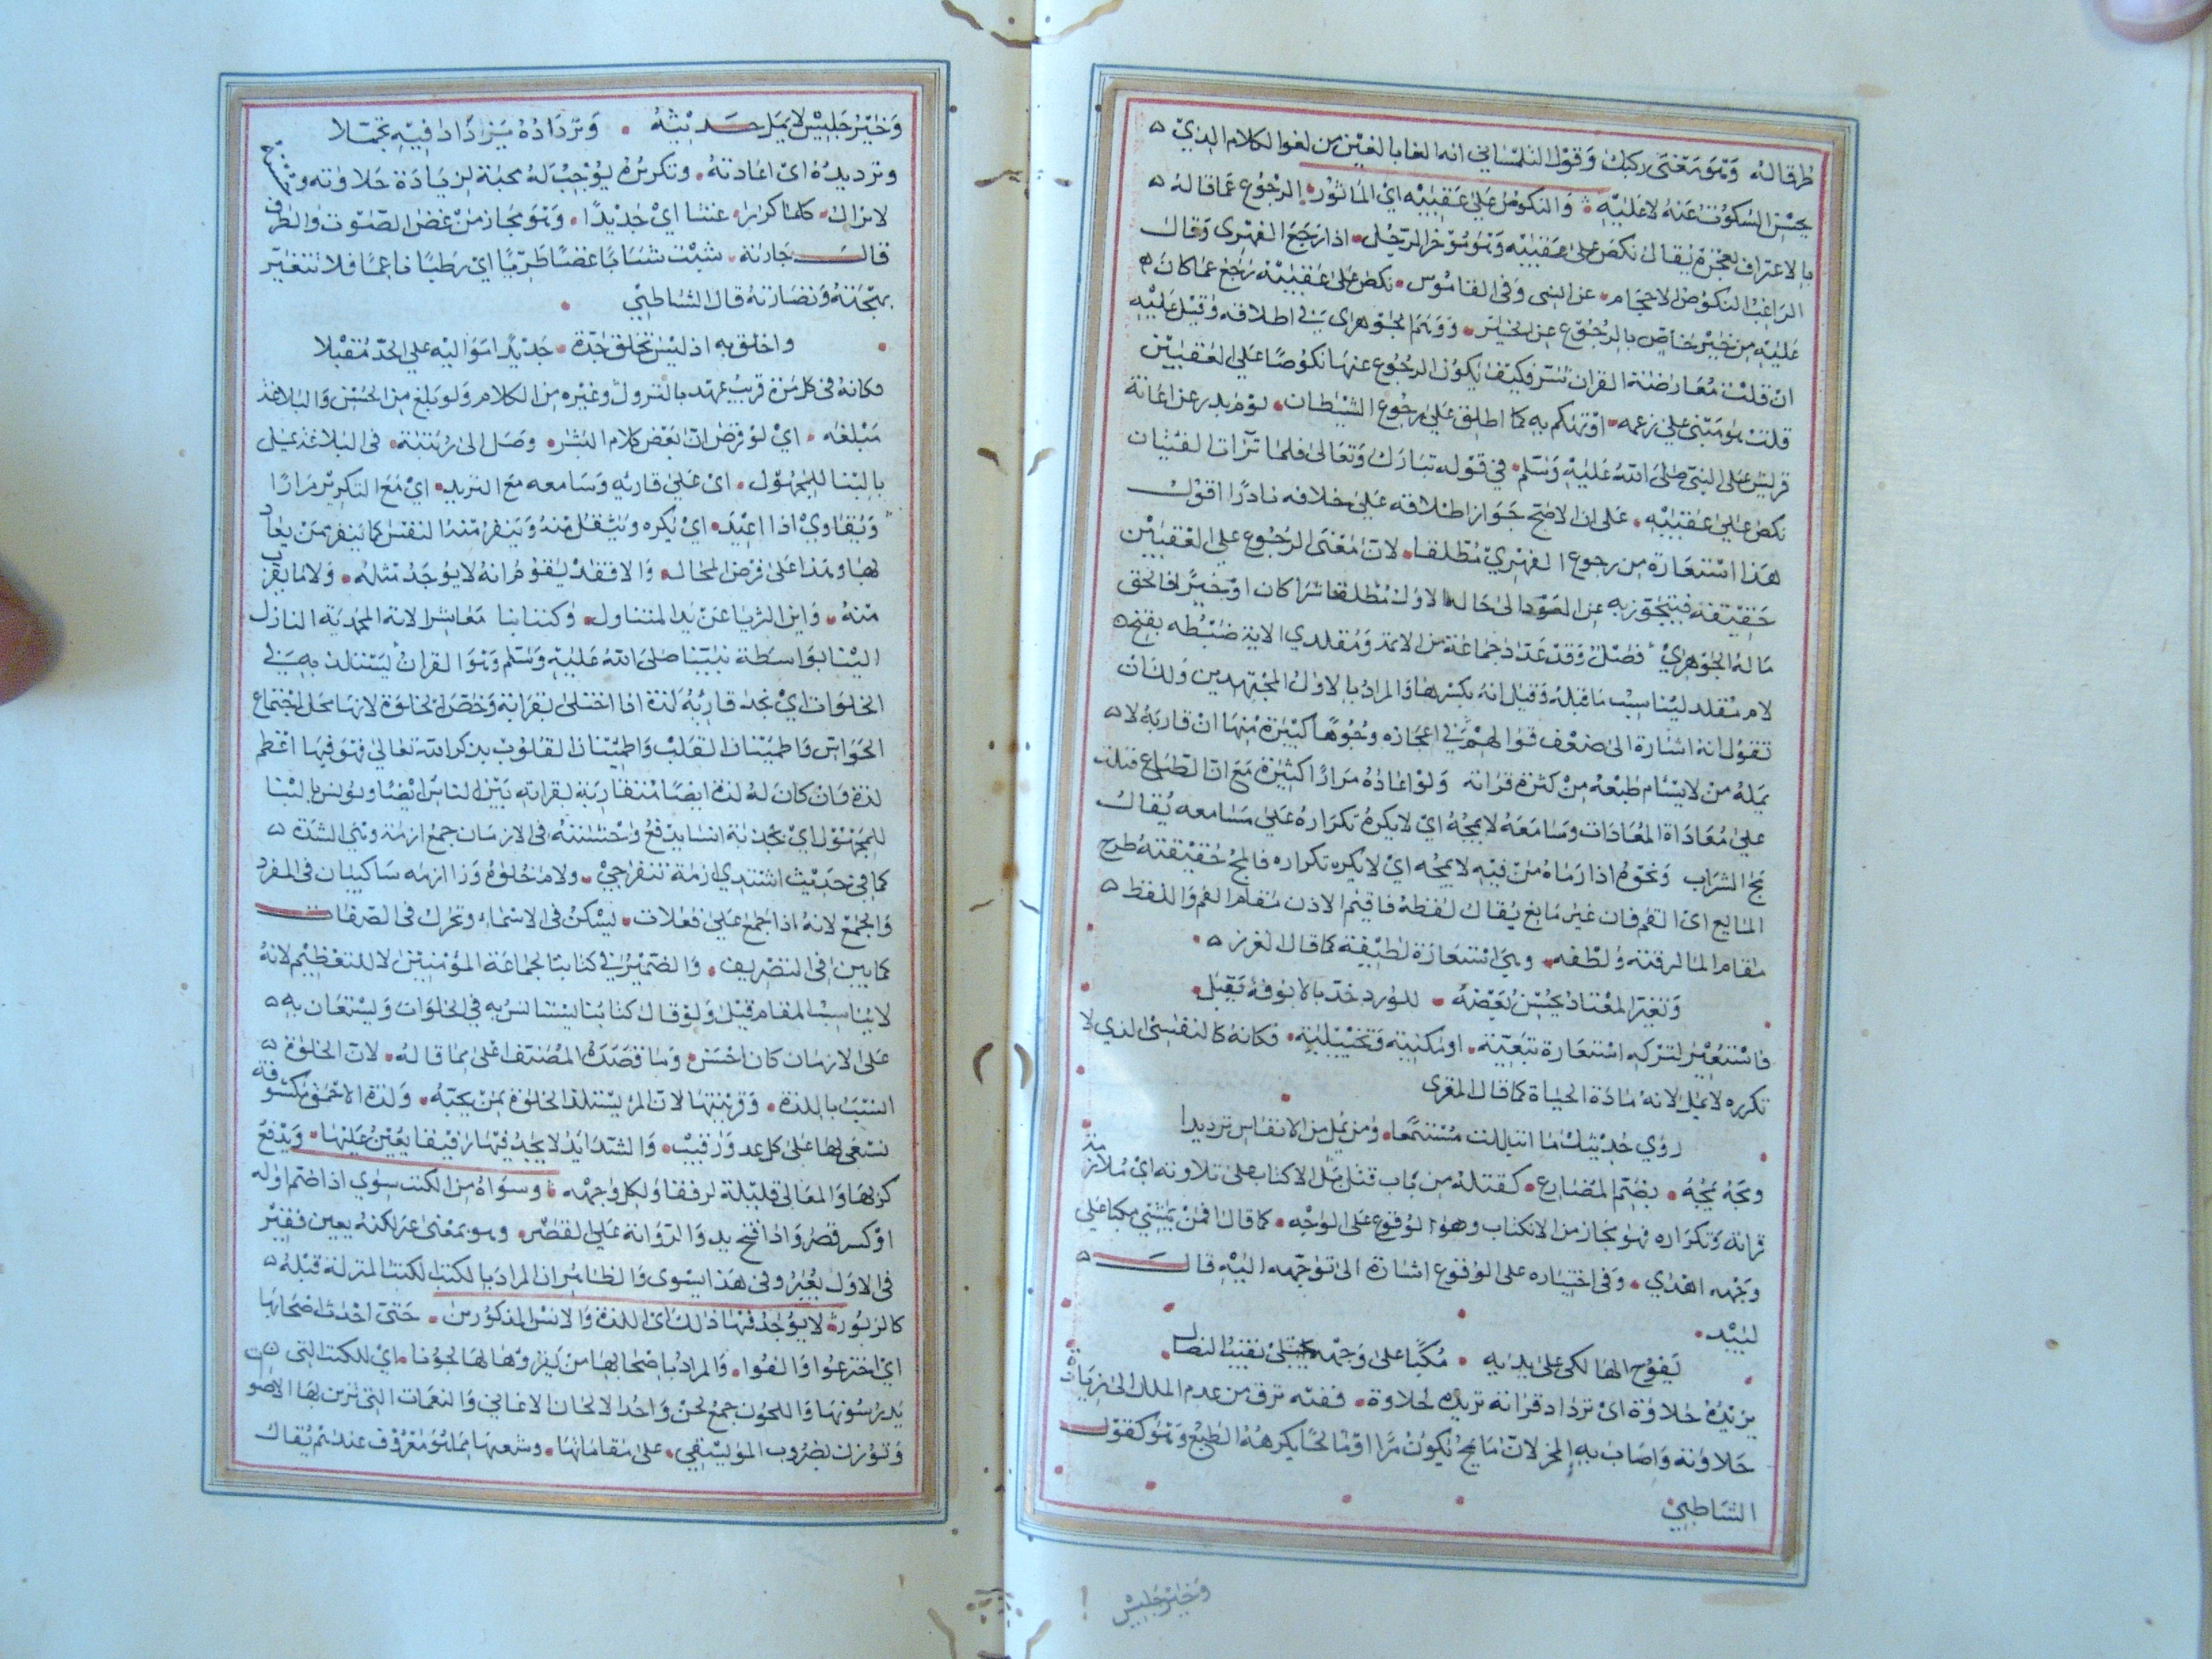 طرقاله وهو معنى ركيك وقول التلمساني انه الغا بالغين من لغو الكلام الذي
يحسن السكوت عنه لا عليه والنكوص على عقبيه اي الماثور الرجوع عما قاله
بالاعتراف بعجزه يقال نكص على عقبيه وهو مؤخر الرجل اذا رجع القهقرى وقال
الراغب النكوص الاحجام عن الشى وفى القاموس نكص على عقبيه رجع عما كان
عليه من خير خاص بالرجوع عن الخير ووهم الجوهرى في اطلاقه وقيل عليه
ان قلت معارضة القران شر فكيف يكون الرجوع عنها نكوصا على العقبين
قلت هو مبنى على زعمه او تهكم به كما اطلق على رجوع الشيطان يوم بدر عن اعانة
قريش على النبى صلى الله عليه وسلم في قوله تبارك وتعالى فلما ترآت الفئتان
نكص على عقبيه على ان الاصح جواز اطلاقه على خلافه نادرا اقول
هذا استعارة من رجوع القهقري مطلقا لان معنى الرجوع على العقبين
حقيقته فيتجوز به عن العود الى حاله الاول مطلقا شرا كان او خيرا فالحق
ما له الجوهري فصل وقد عد جماعة من الائمة ومقلدي الاية ضبطه بفتح
لام مقلد ليناسب ما قبله وقيل انه بكسرها والمراد بالاول المجتهدين ولك ان
تقول انه اشارة الى ضعف قولهم في اعجازه وجوها كثيرة منها ان قاريه لا
يمله من لا يسام طبعه من كثرة قراته ولو اعاده مرارا كثيرة مع ان الطباع
على معاداة المعادات وسامعه لا يمجه اي لا يكره تكراره على مسامعه يقال
مج الشراب ونحوه اذا رماه من فيه لا يمجه اي لا يكره تكراره فالمج حقيقته طرح
المايع اى القم فان غير مايع يقال لفظه فاقيم الاذن مقام الفم واللفظ
مقام الما لرقته ولطفه وهى استعارة لطيفة كما قال الغزى
وتغير المعتاد يحسن بعضه للورد خد بالانوف يقبل
فاستعير لتركه استعارة تبعية او مكنية وتخييلية فكانه كالنفس الذي لا
تكرره لا يمل لانه مادة الحياة كما قال المعرى
ردي حديثك ما امللت مستمعا ومن يمل من الانفاس ترديدا
ومجه يمجه بضم المضارع كقتله من باب قتل بل الاكباب على تلاوته اى ملازمة
قراته وتكراره فهو مجاز من الانكباب وهو الوقوع على الوجه كما قال افمن يمشي مكبا على
وجهه اهدي وفى اختياره على الوقوع اشارة الى توجهه اليه قال
لبيد
يفوح الهالكى على يديه مكبا على وجهه نقب النصال
يزيده حلاوة اى ترداد قرانه تزيده حلاوة ففيه ترق من عدم الملل الى زيادة
حلاوته واصاب به المحز لان ما يمج يكون مرا او مالحا يكرهه الطبع وهو كقول
الشاطبي
وخير جليس
وخير جليس لا يمل حديثه وترداده يزداد فيه تجملا
وترديده اى اعادته وتكريره يوجب له محبة لزيادة حلاوته و
لا يزال كلما كرر غضا اي جديدا وهو مجاز من غض الصوت والطرف
قال جارته شبت شبابا غضا طريا اي رطبا ناعما فلا تتغير
بهجته ونضارته قال الشاطبي
واخلق به اذ ليس يخلق جدة جديدا مواليه على الجد مقبلا
فكانه فى كل مرة قريب عهد بالنزول وغيره من الكلام ولو بلغ من الحسن والبلاغة
مبلغه اي لو فرض ان بعض كلام البشر وصل الى رتبته فى البلاغة يمل
بالبنا للمجهول اى على قاريه وسامعه مع الترديد اي مع التكرير مرارا
ويعادي اذا اعيد اي يكره ويثقل منه وينفر منه النفس كما ينفر ممن يعاد
لها وهذا على فرض المحال والا فقد يقوم انه لا يوجد مثله ولا ما يقرب
منه واين الثريا عن يد المتناول وكتابنا معاشر الامة المحمدية النازل
الينا بواسطة نبينا صلى الله عليه وسلم وهو القران يستلذ به في
الخلوات اي يجد قاريه لذة اذا اختلى بقرائه وخص الخلوة لانها محل اجتماع
الحواس واطمينان القلب واطمينان القلوب بذكر الله تعالى فهو فيها اعظم
لذة وان كان له لذة ايضا متقاربة لقراته بين الناس ايضا ويونس بالبنا
للمجهول اي يجد به انسا يدفع وحشته فى الازمان جمع ازمة وهى الشدة
كما فى حديث اشتدي ازمة تنفرجي ولام خلوة وزا ازمة ساكنان فى المفرد
والجمع لانه اذا جمع على فعلات يسكن فى الاسماء وتحرك فى الصفات
كما بين فى التصريف والضمير في كتابنا لجماعة المؤمنين لا للتعظيم لانه
لا يناسب المقام قيل ولو قال كتابنا يستانس به في الخلوات ويستعان به
على الازمان كان احسن وما قصده المصنف اعلى مما قاله لان الخلوة
انسب باللذة وقرينتها لان المرء يستلذ الخلوة بمن يحبه ولذة الاحمق مكشوفة
تسعى لها على كل عدو ورقيب والشدايد لا يجد فيها رفيقا يعين عليها ويدفع
كربها والمعالى قليلة لرفقا ولكل وجهه وسواه من الكتب سوي اذا ضم اوله
او كسر قصر واذا فتح يمد والرواية على القصر وهو بمعنى غير لكنه يعين فقير
فى الاول بغير وفى هذا بسوى والظاهر ان المراد بالكتب الكتب المنزلة قبله
كالزبور لا يوجد فيها ذلك اى اللذة والانس المذكورين حتى احدث اصحابها
اي اخترعوا والفوا والمراد باصحابها من يقروها لها لحونا اي للكتب التى
يدرسونها واللحون جمع لحن واحد الالحان الاغاني والنغمات التى تزين بها الاصوات
وتوزن بضروب الموسيقى على مقاماتها وشعبها مما هو معروف عندهم يقال